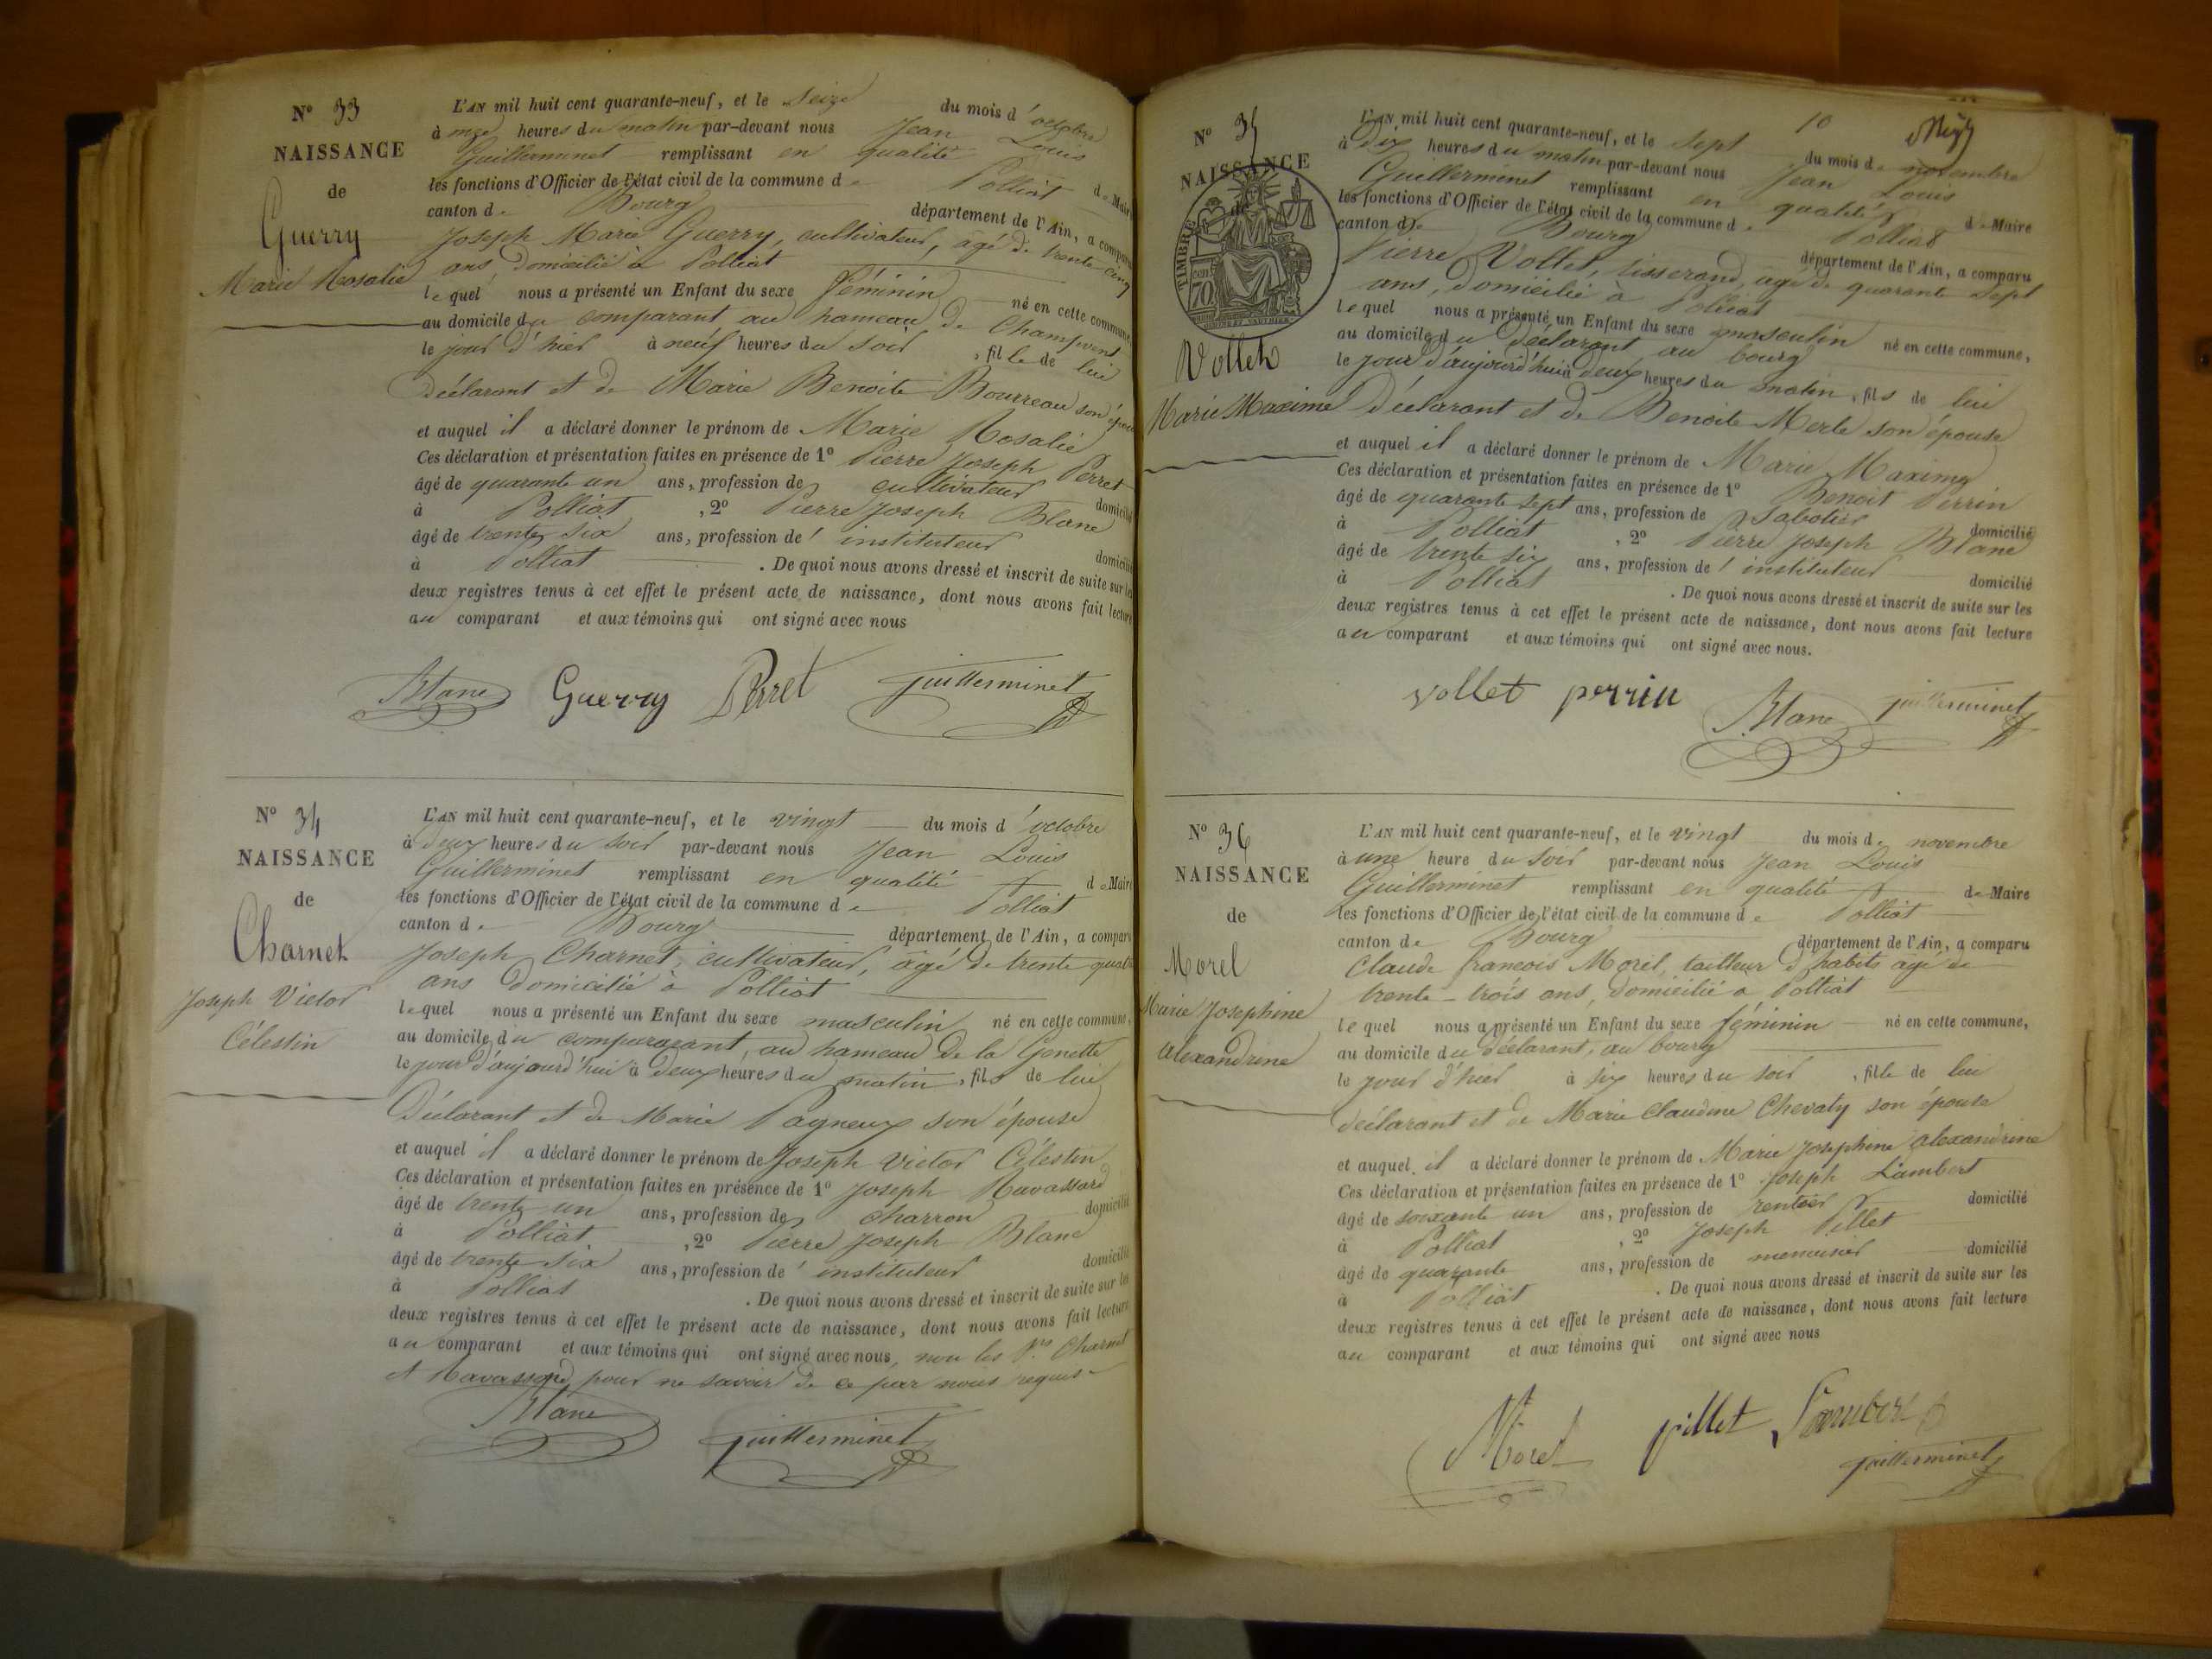 N° 33
NAISSANCE
de
Guerry
Marie Rosalie
L'AN mil huit cent quarante-neuf, et le seize du mois d'octobre
à onze heures du matin par-devant nous Jean Louis
Guillerminet remplissant en qualité de Maire
les fonctions d'Officier de l'état civil de la commune de Polliat
canton de Bourg département de l'Ain, a comparu
Joseph Marie Guerry, cultivateur, âgé de trente cinq
ans, domicilié à Polliat
lequel nous a présenté un Enfant du sexe féminin né en cette commune
au domicile du comparant au hameau de Champvent
le jour d'hier à neuf heures du soir, fille de lui
Déclarant et de Marie Benoite Bourreau son épouse
et auquel il a déclaré donner le prénom de Marie Rosalie
Ces déclaration et présentation faites en présence de 1° Pierre Joseph Perret
âgé de quarante un ans, profession de cultivateur domicilié
à Polliat, 2° Pierre Joseph Blanc
âgé de trente six ans, profession d'instituteur domicilié
à Polliat. De quoi nous avons dressé et inscrit de suite sur les
deux registres tenus à cet effet le présent acte de naissance, dont nous avons fait lecture
au comparant et aux témoins qui ont signé avec nous
Blanc Guerry Perret guillerminet
N° 34
NAISSANCE
de
Charnet
Joseph Victor
Célestin
L'AN mil huit cent quarante-neuf, et le vingt du mois d'octobre
à deux heures du soir par-devant nous Jean Louis
Guillerminet remplissant en qualité de Maire
les fonctions d'Officier de l'état civil de la commune de Polliat
canton de Bourg département de l'Ain, a comparu
Joseph Charnet, cultivateur, âgé de trente quatre
ans domicilié à Polliat
lequel nous a présenté un Enfant du sexe masculin né en cette commune,
au domicile du comparant, au hameau de la Genette
le jour d'aujourd'hui à deux heures du matin, fils de lui
Déclarant et de Marie Pagneux son épouse
et auquel il a déclaré donner le prénom de Joseph Victor Célestin
Ces déclaration et présentation faites en présence de 1° Joseph Ravassard
âgé de trente un ans, profession de charron domicilié
à Polliat, 2° Pierre Joseph Blanc
âgé de trente six ans, profession d'instituteur domicilié
à Polliat. De quoi nous avons dressé et inscrit de suite sur les
deux registres tenus à cet effet le présent acte de naissance, dont nous avons fait lecture
au comparant et aux témoins qui ont signé avec nous, non les Srs Charnet
et Ravassard pour ne savoir de ce par nous requis
Blanc guillerminet
10
N° 35
NAISSANCE
de
TIMBRE
70
Vollet
Marie Maxime
L'AN mil huit cent quarante-neuf, et le sept du mois de novembre
à dix heures du matin par-devant nous Jean Louis
Guillerminet remplissant en qualité de Maire
les fonctions d'Officier de l'état civil de la commune de Polliat
canton de Bourg département de l'Ain, a comparu
Pierre Vollet, tisserand, âgé de quarante sept
ans, domicilié à Polliat
lequel nous a présenté un Enfant du sexe masculin né en cette commune,
au domicile du déclarant au bourg
le jour d'aujourd'hui à deux heures du matin, fils de lui
Déclarant et de Benoite Merle son épouse
et auquel il a déclaré donner le prénom de Marie Maxime
Ces déclaration et présentation faites en présence de 1° Benoit Perrin
âgé de quarante sept ans, profession de Sabotier domicilié
à Polliat, 2° Pierre Joseph Blanc
âgé de trente six ans, profession d'instituteur domicilié
à Polliat. De quoi nous avons dressé et inscrit de suite sur les
deux registres tenus à cet effet le présent acte de naissance, dont nous avons fait lecture
au comparant et aux témoins qui ont signé avec nous.
vollet perrin Blanc guillerminet
N° 36
NAISSANCE
de
Morel
Marie Josephine
alexandrine
L'AN mil huit cent quarante-neuf, et le vingt du mois de novembre
à une heure du soir par-devant nous Jean Louis
Guillerminet remplissant en qualité de Maire
les fonctions d'Officier de l'état civil de la commune de Polliat
canton de Bourg département de l'Ain, a comparu
Claude francois Morel, tailleur d'habits âgé de
trente-trois ans, domicilié a Polliat
lequel nous a présenté un Enfant du sexe féminin né en cette commune,
au domicile du déclarant, au bourg
le jour d'hier à six heures du soir, fille de lui
déclarant et de Marie Claudine Chevaly son épouse
et auquel il a déclaré donner le prénom de Marie Josephine alexandrine
Ces déclaration et présentation faites en présence de 1° Joseph Lambert
âgé de soixante un ans, profession de rentier domicilié
à Polliat, 2° Joseph Pillet
âgé de quarante ans, profession de menuisier domicilié
à Polliat. De quoi nous avons dressé et inscrit de suite sur les
deux registres tenus à cet effet le présent acte de naissance, dont nous avons fait lecture
au comparant et aux témoins qui ont signé avec nous
Morel pillet Lambert
guillerminet